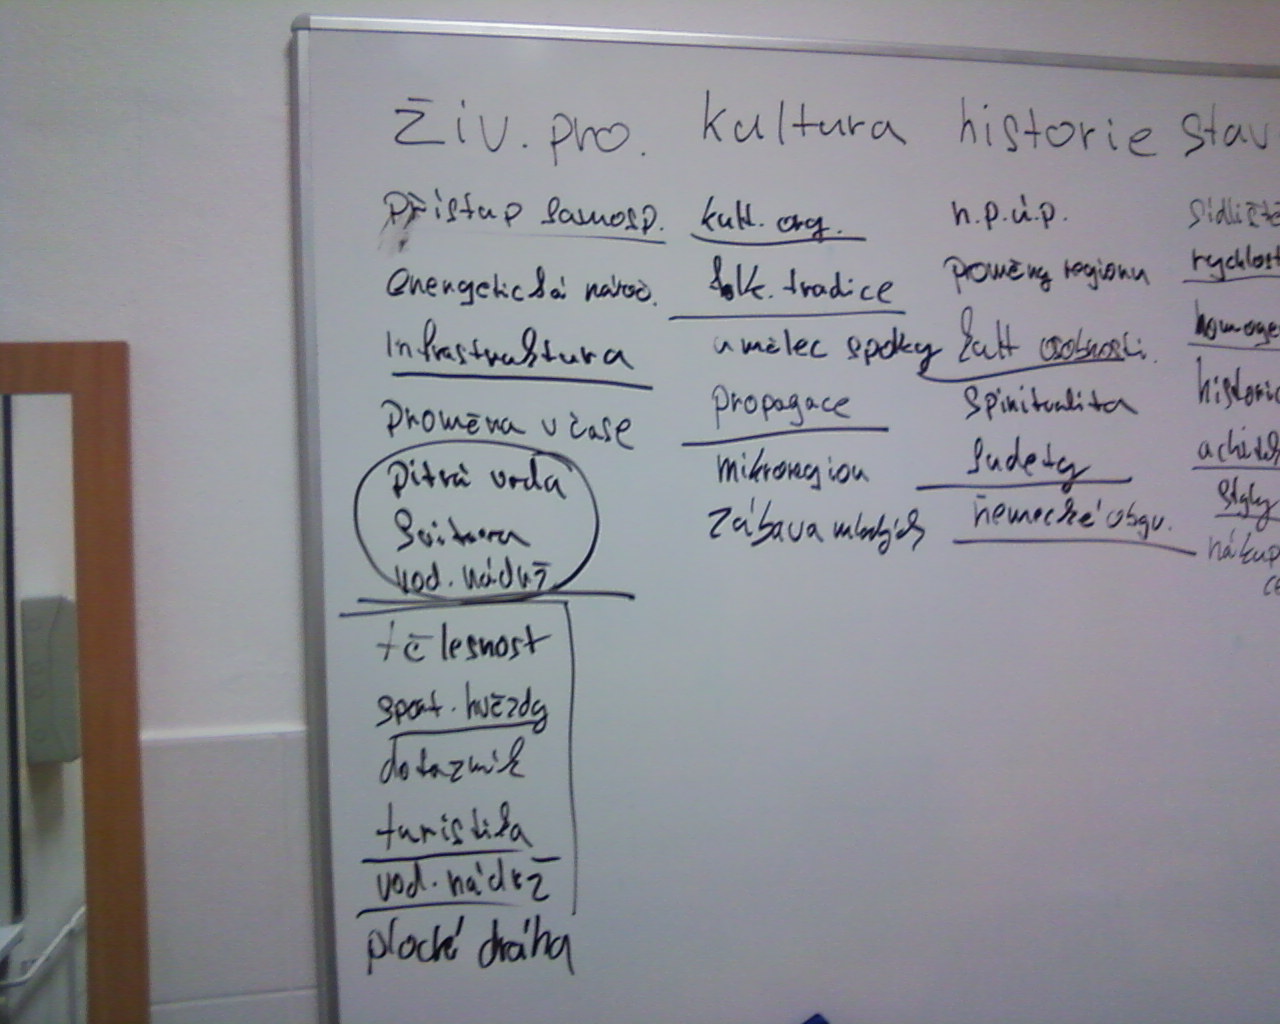 živ. pro.
přístup samosp.
energetická nároč.
infrastruktura
proměna v čase
pitná voda
Svitava
vod. nádrž
tělesnost
sport. hvězdy
dotazník
turistika
vod. nádrž
plochá dráha
kultura
kult. org.
folk. tradice
umělec spolky
propagace
mikroregion
zábava mladých
historie
n.p.ú.p.
proměny regionu
kult osobnosti
spiritualita
Sudety
německé obyv.
stav
sídliště
rychlost
homoge
historic
styly
nákup